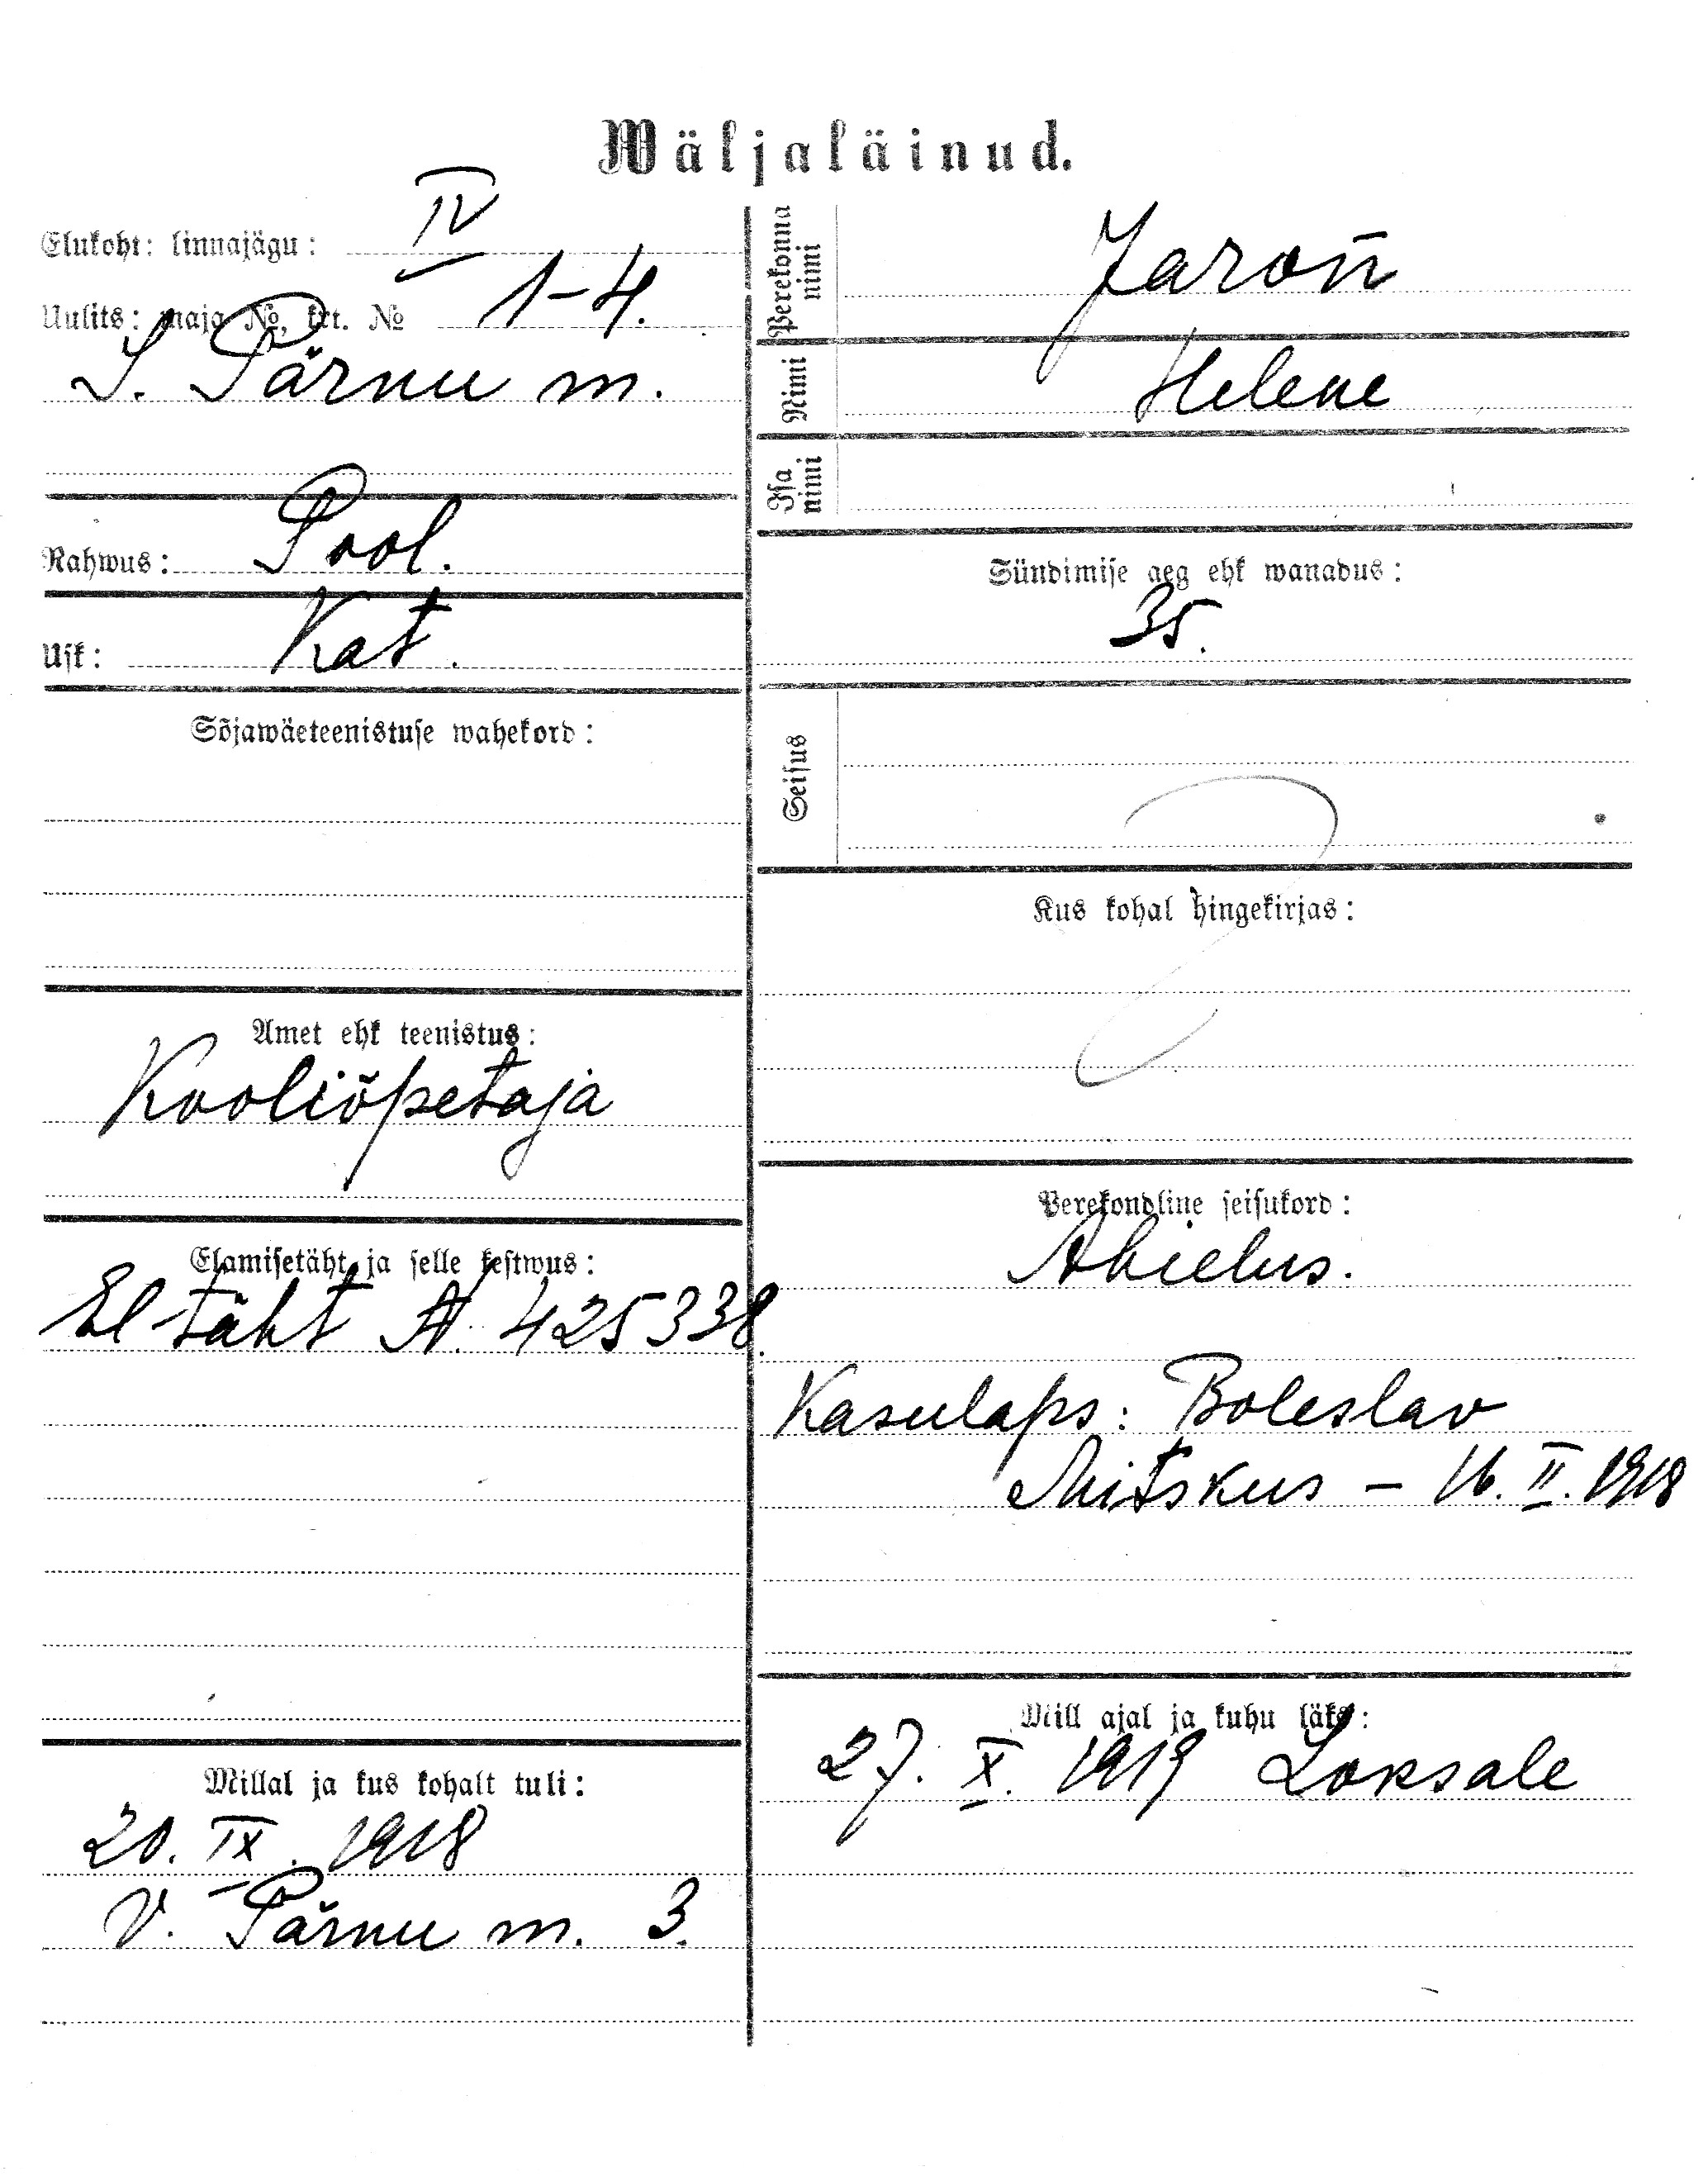 Wäljakäinud.
Elukoht: linnajägu: IV
Uulits: maja №, krt. № 1-4.
S. Pärnu m.
Rahwus: Pool.
Usk: Kat.
Sõjawäeteenistuse wahekord:
Amet ehk teenistus:
Kooliõpetaja
Elamisetäht ja selle kestwus:
El täht A. 425338.
Millal ja kus kohalt tuli:
20. IX. 1918
V. Pärnu m. 3.
Perekonna nimi Jaroń
Nimi Helene
Isa nimi
Sündimise aeg ehk wanadus:
35.
Seisus
Kus kohal hingekirjas:
Perekondline seisukord:
Abielus.
Kasulaps: Boleslav
Mitskus - 16. II. 1918
Mill ajal ja kuhu läks:
27. X. 1919 Loksale